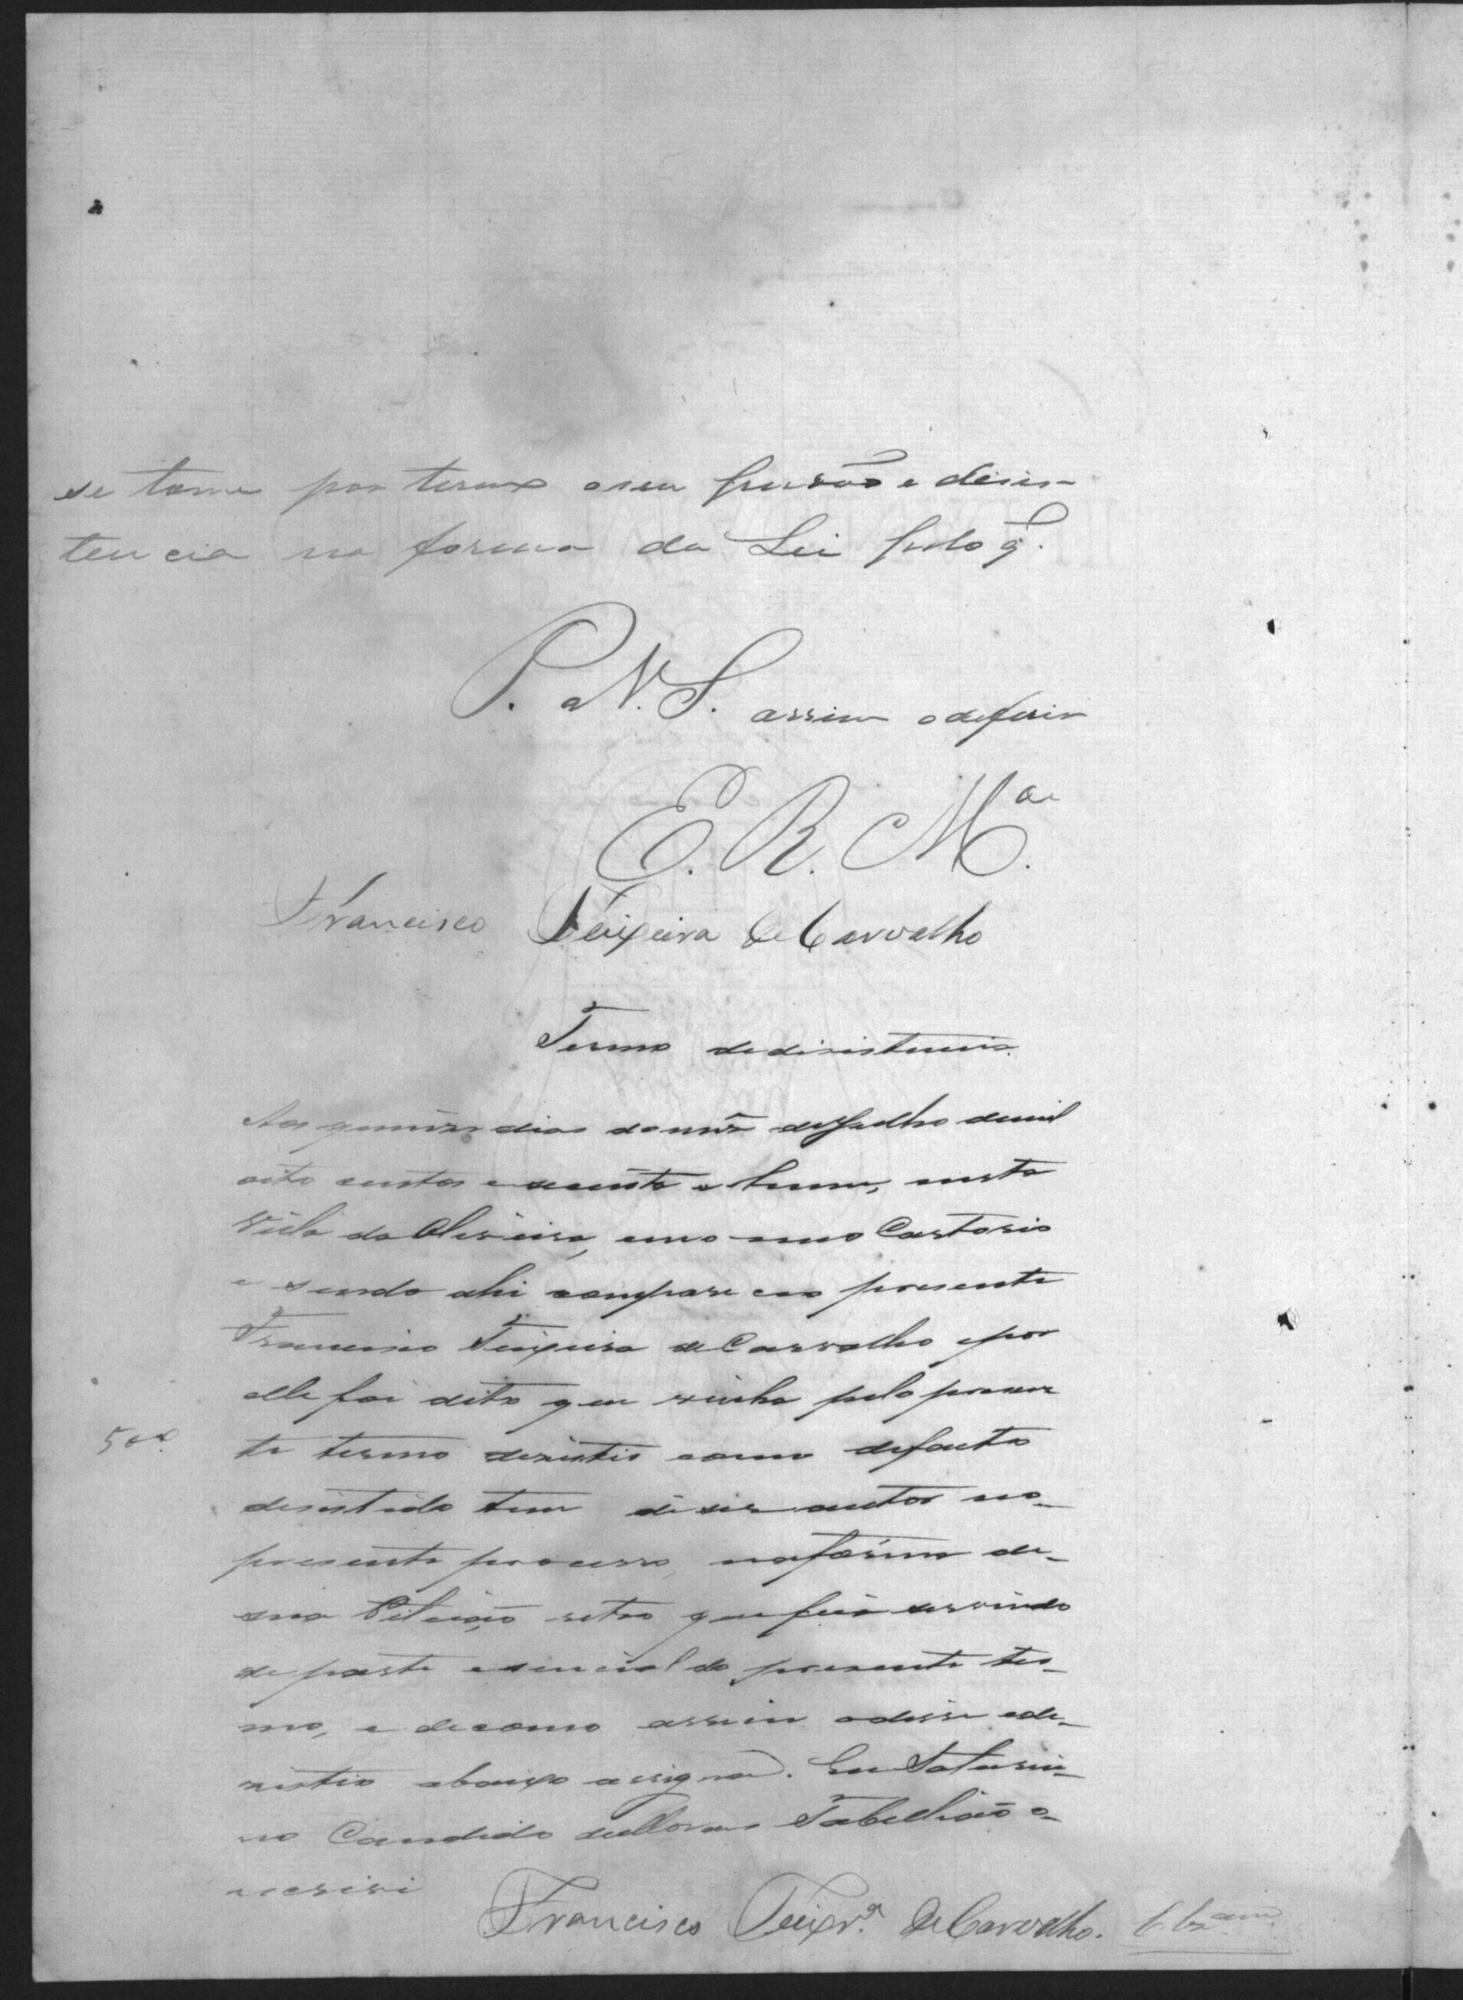 se tome por termo o seu perdão e desis-
tencia na forma da Lei pelo q̃.
P. a V. S. assim o deferir
E. R. M.ce
Francisco Teixeira de Carvalho
Termo de desistencia.
Aos quinze dias do mês de Julho de mil
oito centos e secenta e hum, nesta
Villa da Oliveira, em o meo Cartorio
e sendo ahi compareceo presente
Francisco Teixeira de Carvalho e por
elle foi dito que vinha pelo presen
te termo dezistir como de facto
desistido tem de ser autor no
presente processo, na fórma de
sua Petição retro que fica servindo
de parte esencial do presente ter-
mo, e de como assim o disse e de-
zistio abaixo assigna. Eu Saturni-
no Candido de Moraes Tabellião o
escrevi
500
Francisco Teixr.ª de Carvalho.